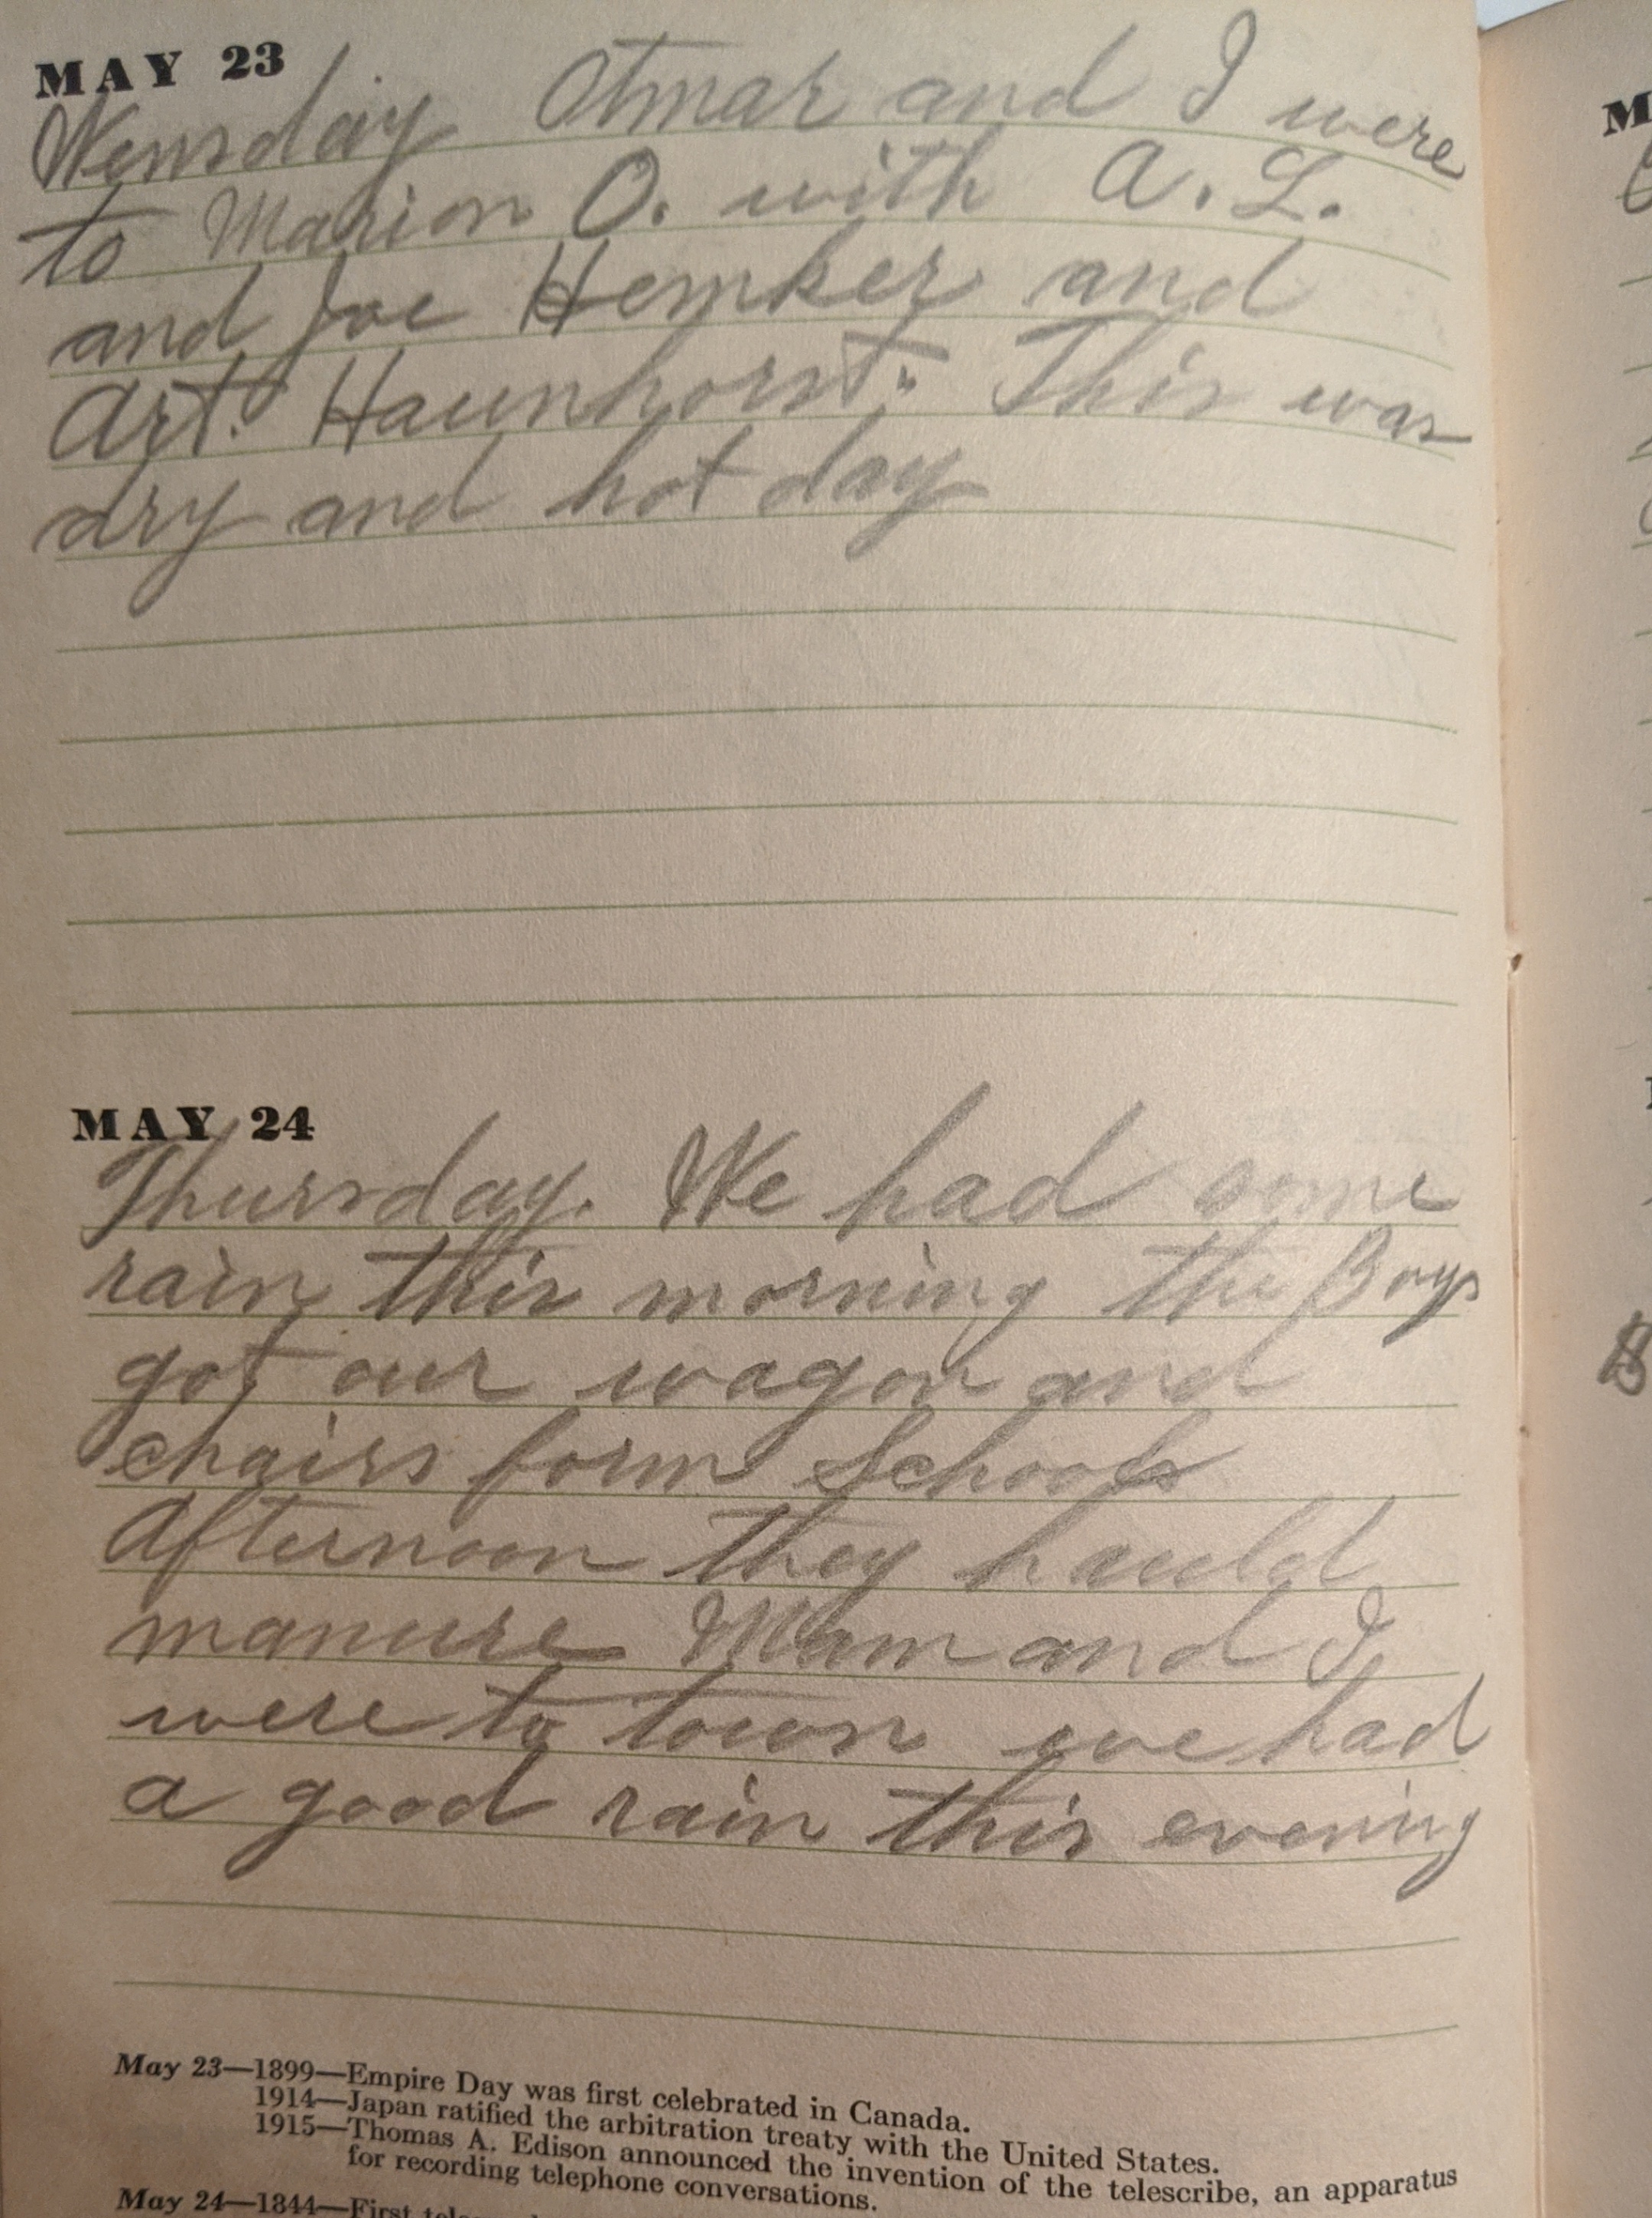 MAY 23
Wensday Otmar and I were
to Marion O. with A. L.
and Joe Hemker and
Art. Haunhorst. This was
dry and hot day
MAY 24
Thursday. We had some
rain this morning the Boys
got our wagon and
chairs form Schools
Afternoon they hauld
manure Mam and I
were to town we had
a good rain this evening
May 23—1899—Empire Day was first celebrated in Canada.
1914—Japan ratified the arbitration treaty with the United States.
1915—Thomas A. Edison announced the invention of the telescribe, an apparatus
for recording telephone conversations.
May 24—1844—First